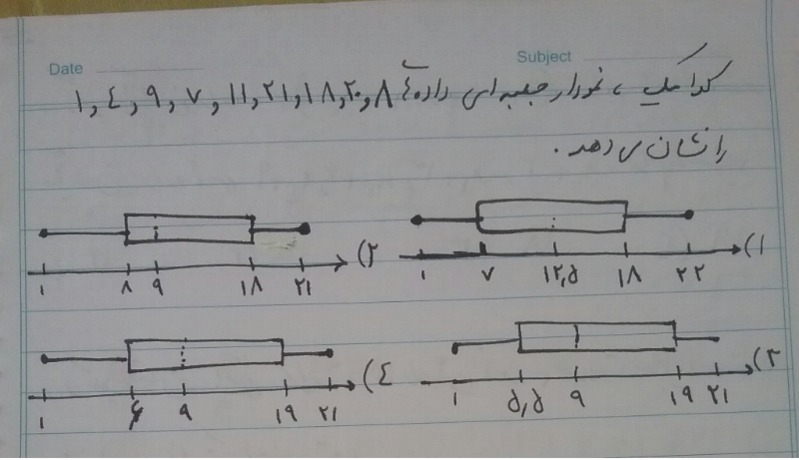 Date Subject
کدامیک، نمودار جعبه ای داده‌ی ۸, ۲۰, ۱۸, ۲۱, ۱۱, ۷, ۹, ۴, ۱
را نشان می دهد.
۱) ۱ ۷ ۱۲,۵ ۱۸ ۲۲
۲) ۱ ۸ ۹ ۱۸ ۲۱
۳) ۱ ۵,۵ ۹ ۱۹ ۲۱
۴) ۱ ۶ ۹ ۱۹ ۲۱